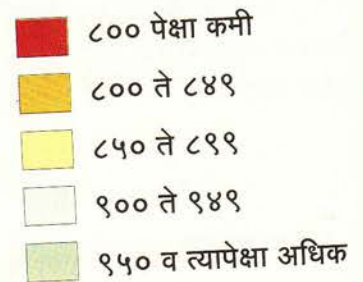 ८०० पेक्षा कमी
८०० ते ८४९
८५० ते ८९९
९०० ते ९४९
९५० व त्यापेक्षा अधिक